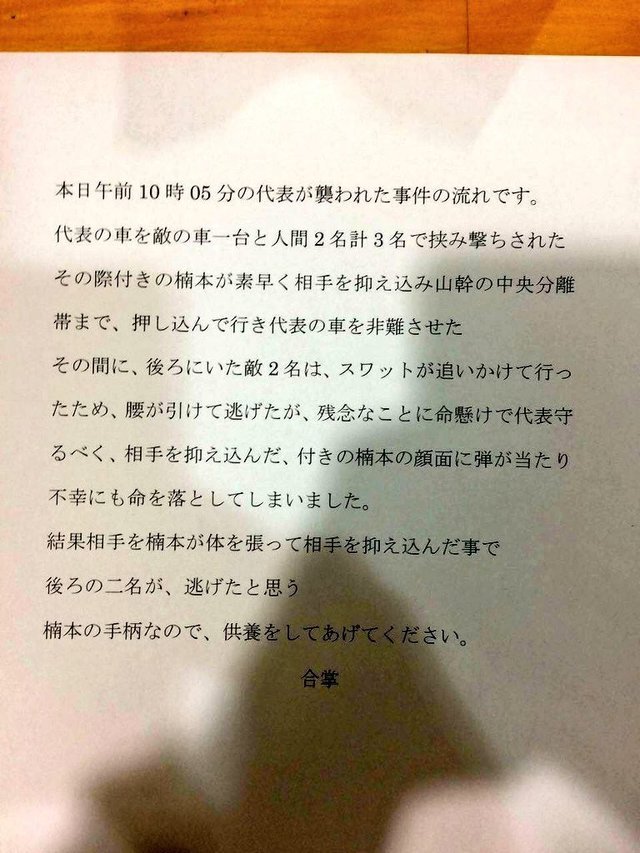 本日午前10時05分の代表が襲われた事件の流れです。
代表の車を敵の車一台と人間2名計3名で挟み撃ちされた
その際付きの楠本が素早く相手を抑え込み山幹の中央分離
帯まで、押し込んで行き代表の車を非難させた
その間に、後ろにいた敵2名は、スワットが追いかけて行っ
たため、腰が引けて逃げたが、残念なことに命懸けで代表守
るべく、相手を抑え込んだ、付きの楠本の顔面に弾が当たり
不幸にも命を落としてしまいました。
結果相手を楠本が体を張って相手を抑え込んだ事で
後ろの二名が、逃げたと思う
楠本の手柄なので、供養をしてあげてください。
合掌